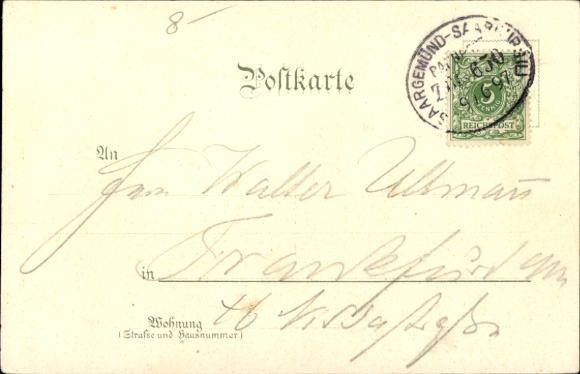 8-
SAARGEMÜND-SAARBR
ZUG 650
9/6 97
5
PFENNIG
REICHSPOST
Postkarte
An
Herrn Walter Ullmann
in Frankfurt am
46
Wohnung
(Straße und Hausnummer)